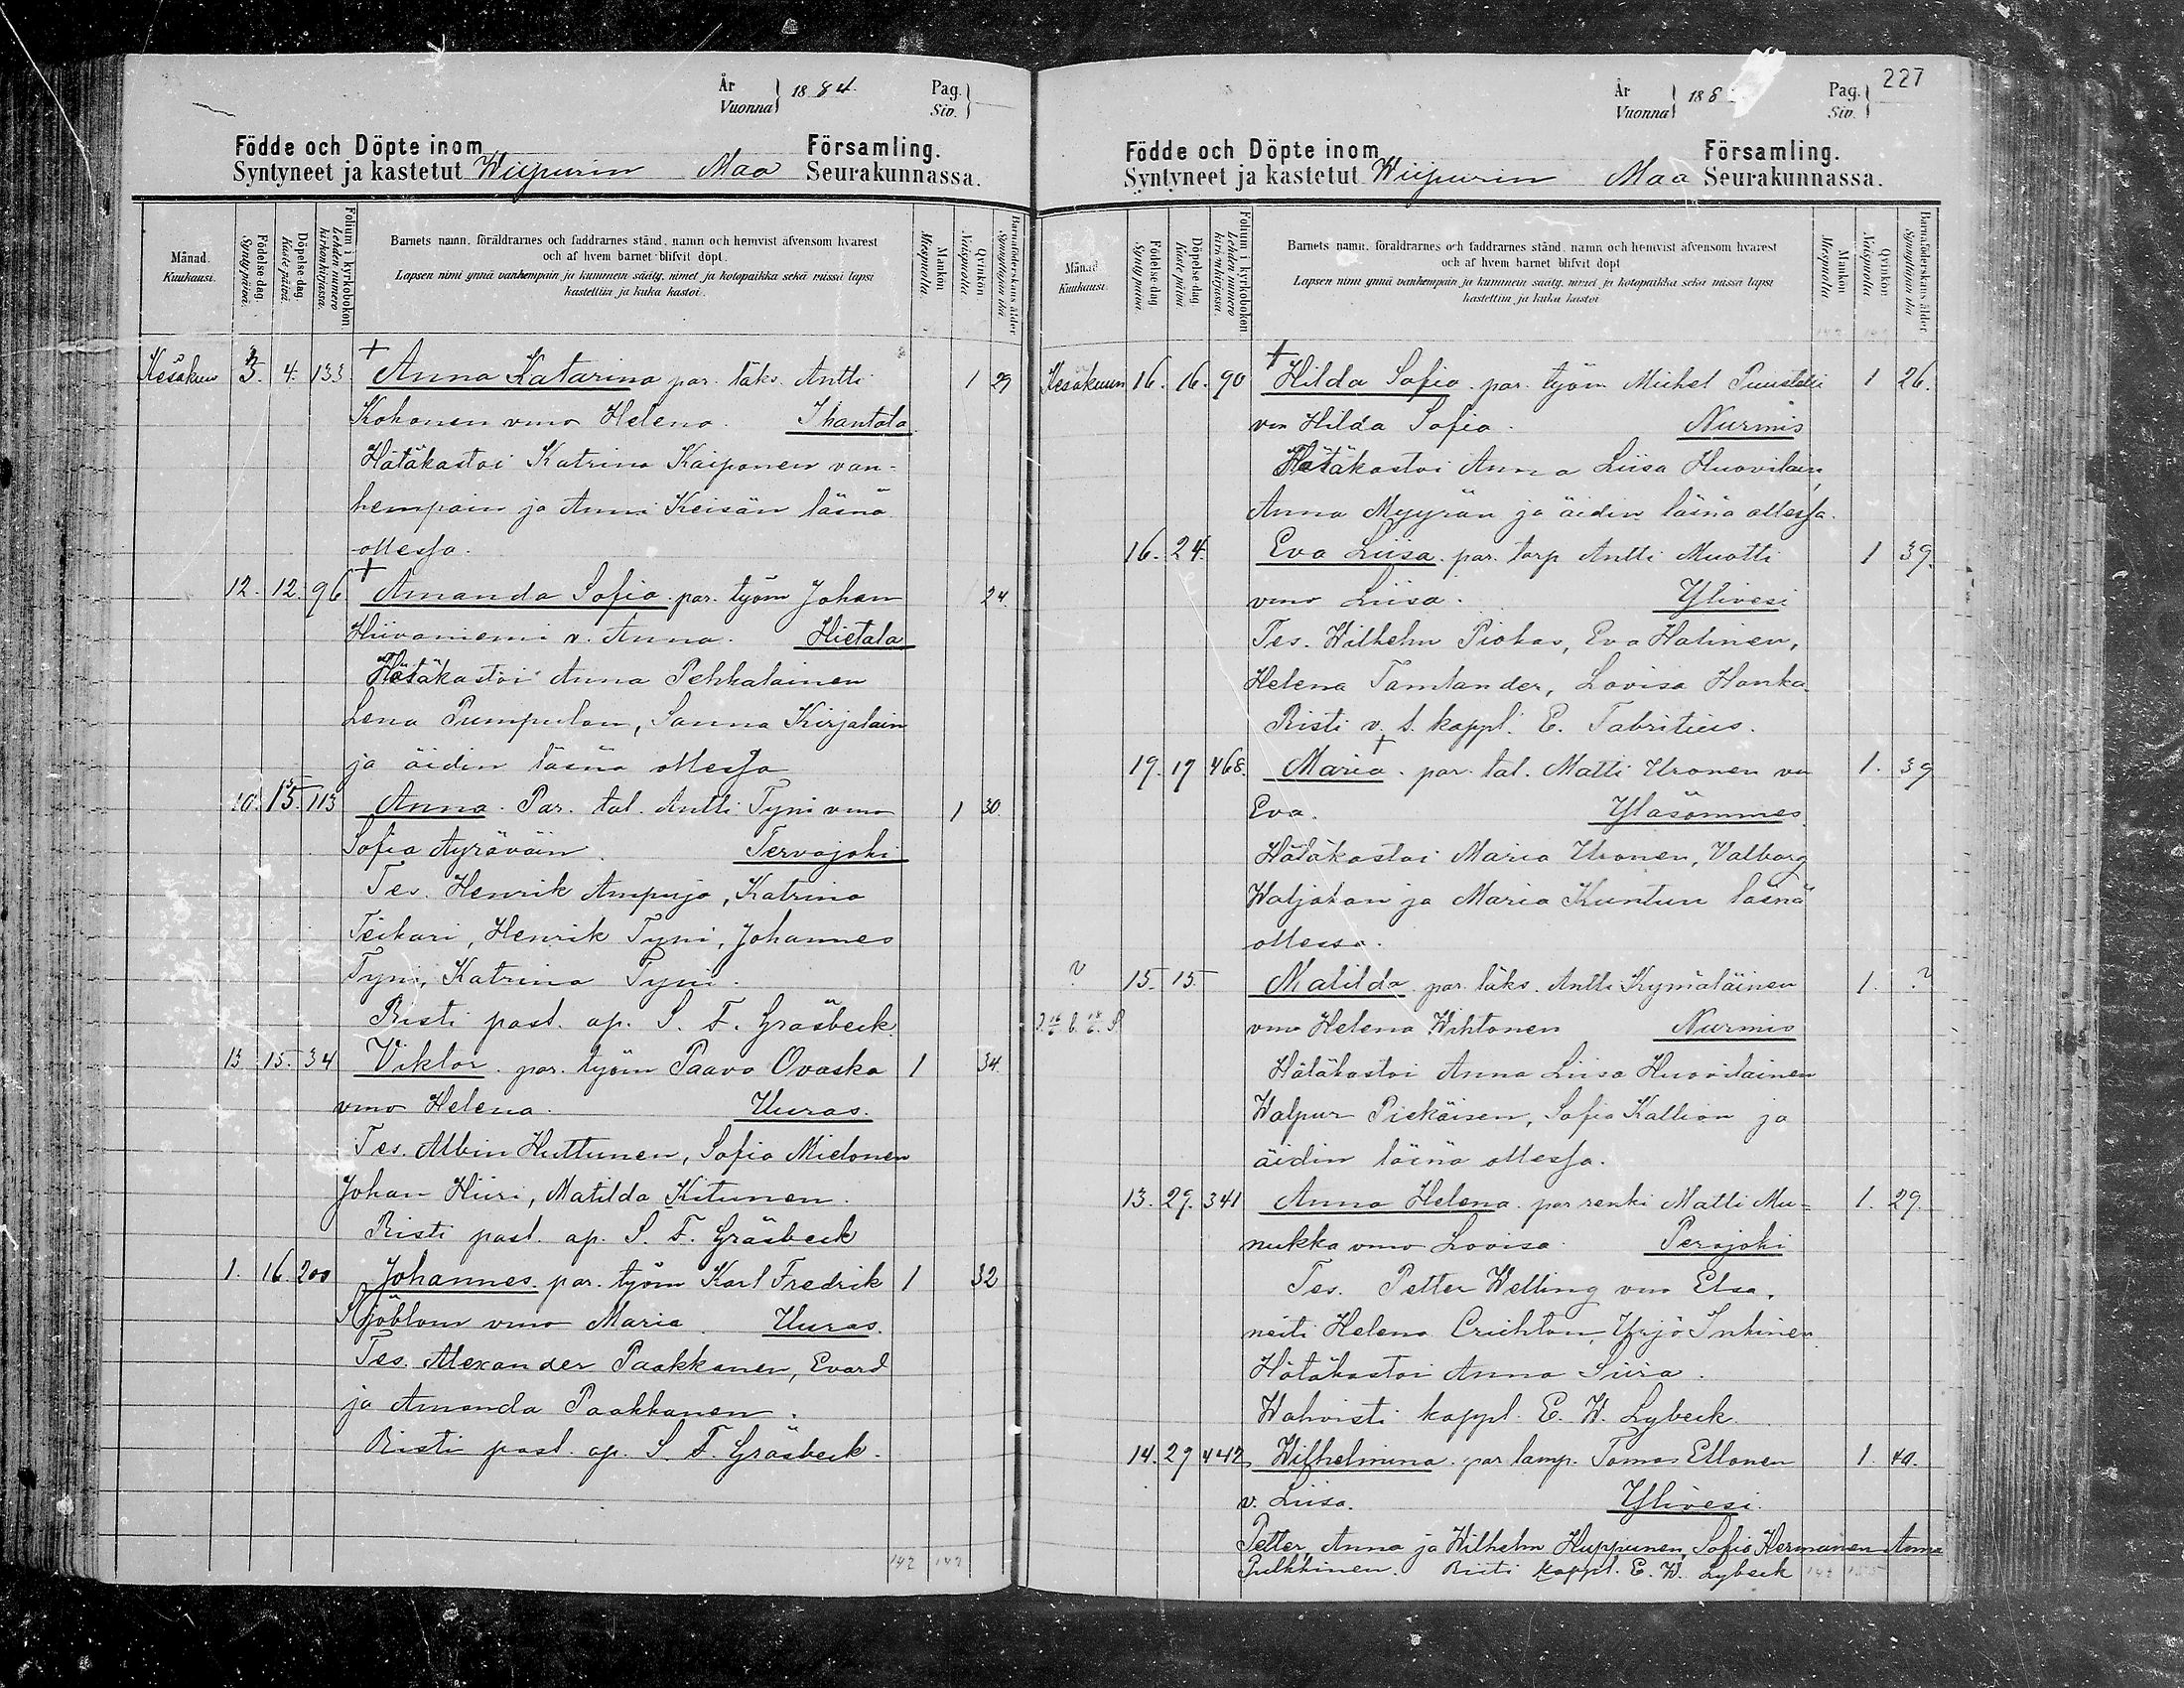 År
Vuonna } 1884.
Pag.
Siv. }
Födde och Döpte inom Församling.
Syntyneet ja kastetut Wiipurin Maa Seurakunnassa.
Månad. Kuukausi.
Födelse dag. Syntypäivä.
Döpelse dag. Kastepäivä.
Folium i kyrkoboken Lehden numero kirkonkirjassa.
Barnets namn, föräldrarnes och faddrarnes stånd, namn och hemvist äfvensom hvarest
och af hvem barnet blifvit döpt.
Lapsen nimi ynnä vanhempain ja kummein sääty, nimet ja kotopaikka sekä missä lapsi
kastettiin ja kuka kastoi.
Mankön Miespuolia
Qvinkön Naispuolia
Barnaföderskans ålder Synnyttäjän ikä
Kesäkuu 3. 4. 133 + Anna Katarina par. läks. Antti 1 29
Kohonen vmo Helena. Ihantala
Hätäkastoi Katrina Kaiponen van-
hempain ja Anni Keisän läsnä
ollessa.
12. 12. 96 + Amanda Sofia par. työm Johan 24.
Hiivaniemi v. Anna. Hietala
Hätäkastoi Anna Pehkalainen
Lena Pumpulan, Sanna Kirjalain
ja äidin läsnä ollessa
10. 15. 113 Anna. Par. tal. Antti Tyni vmo 1 30.
Sofia Äyräväin. Tervajoki
Tes. Henrik Ampuja, Katrina
Teikari, Henrik Tyni, Johannes
Tyni, Katrina Tyni.
Risti past. ap. S. F. Gräsbeck.
13 15. 34 Viktor. par. työm Paavo Ovaska 1 34.
vmo Helena. Uuras.
Tes. Albin Huttunen, Sofia Mielonen
Johan Hiiri, Matilda Kitunen.
Risti past. ap. S. F. Gräsbeck
1. 16. 200 Johannes. par. työm Karl Fredrik 1 32
Sjöblom vmo Maria. Uuras.
Tes. Alexander Paakkanen, Evard
ja Amanda Paakkanen.
Risti past. ap. S. F. Gräsbeck.
142 147
227
År
Vuonna } 188
Pag.
Siv. }
Födde och Döpte inom Församling.
Syntyneet ja kastetut Wiipurin Maa Seurakunnassa.
Månad. Kuukausi.
Födelse dag Syntypäivä.
Döpelse dag Kastepäivä.
Folium i kyrkoboken Lehden numero kirkonkirjassa.
Barnets namn, föräldrarnes och faddrarnes stånd, namn och hemvist äfvensom hvarest
och af hvem barnet blifvit döpt
Lapsen nimi ynnä vanhempain ja kummein sääty, nimet ja kotopaikka sekä missä lapsi
kastettiin ja kuka kastoi
Mankön Miespuolia
Qvinkön Naispuolia
Barnaföderskans ålder Synnyttäjän ikä
Kesäkuun 16. 16. 90 + Hilda Sofia. par. työm Michel Puustelli 1 26.
vm Hilda Sofia. Nurmis
Hätäkastoi Anna Liisa Huovilain,
Anna Myyrän ja äidin läsnä ollessa.
16. 24. Eva Liisa. par. torp Antti Muotti 1 39.
vmo Liisa. Ylivesi
Tes. Wilhelm Piokas, Eva Halinen,
Helena Tamlander, Lovisa Hanka.
Risti v. t. kappl. E. Fabritius.
19. 19 468. Maria +. par. tal. Matti Uronen vm 1. 39
Eva. Yläsömmes.
Hätäkastoi Maria Uronen, Valborg
Waljakan ja Maria Kuntun läsnä
ollessa.
? 15. 15. Matilda. par. läks. Antti Kymäläinen 1. ?
vmo Helena Wihtonen Nurmis
Hätäkastoi Anna Liisa Huovilainen
Walpur Piekäisen, Sofia Kallion ja
äidin läsnä ollessa.
13. 29. 341 Anna Helena. par renki Matti Mu- 1. 29.
nukka vmo Lovisa. Perojoki
Tes. Petter Welling vmo Elsa.
neiti Helena Crichton, Yrjö Inkinen
Hätäkastoi Anna Siira.
Wahvisti kappl. E. W. Lybeck.
14. 29 442 Wilhelmina. par lamp. Tomas Ellonen 1. 40.
v. Liisa. Ylivesi.
Petter, Anna ja Wilhelm Huppunen, Sofia Hermainen Anna
Pulkkinen. Risti kappl. E. W. Lybeck 142 155